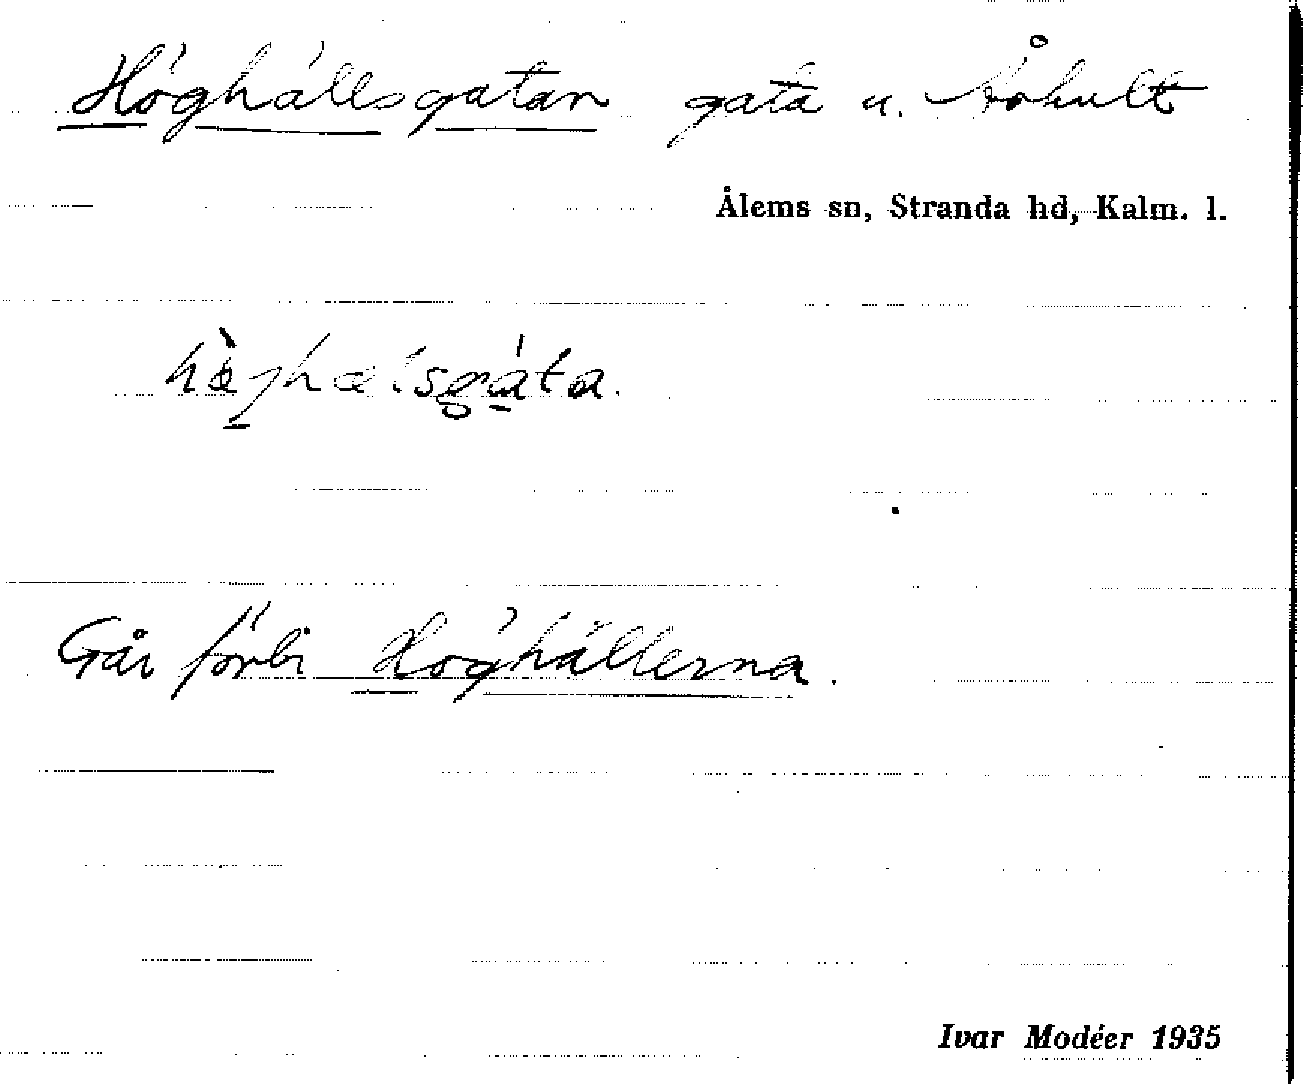 Höghällsgatan gata u. Åkhult
Ålems sn, Stranda hd, Kalm. l.
Går förbi Höghällerna.
Ivar Modéer 1935